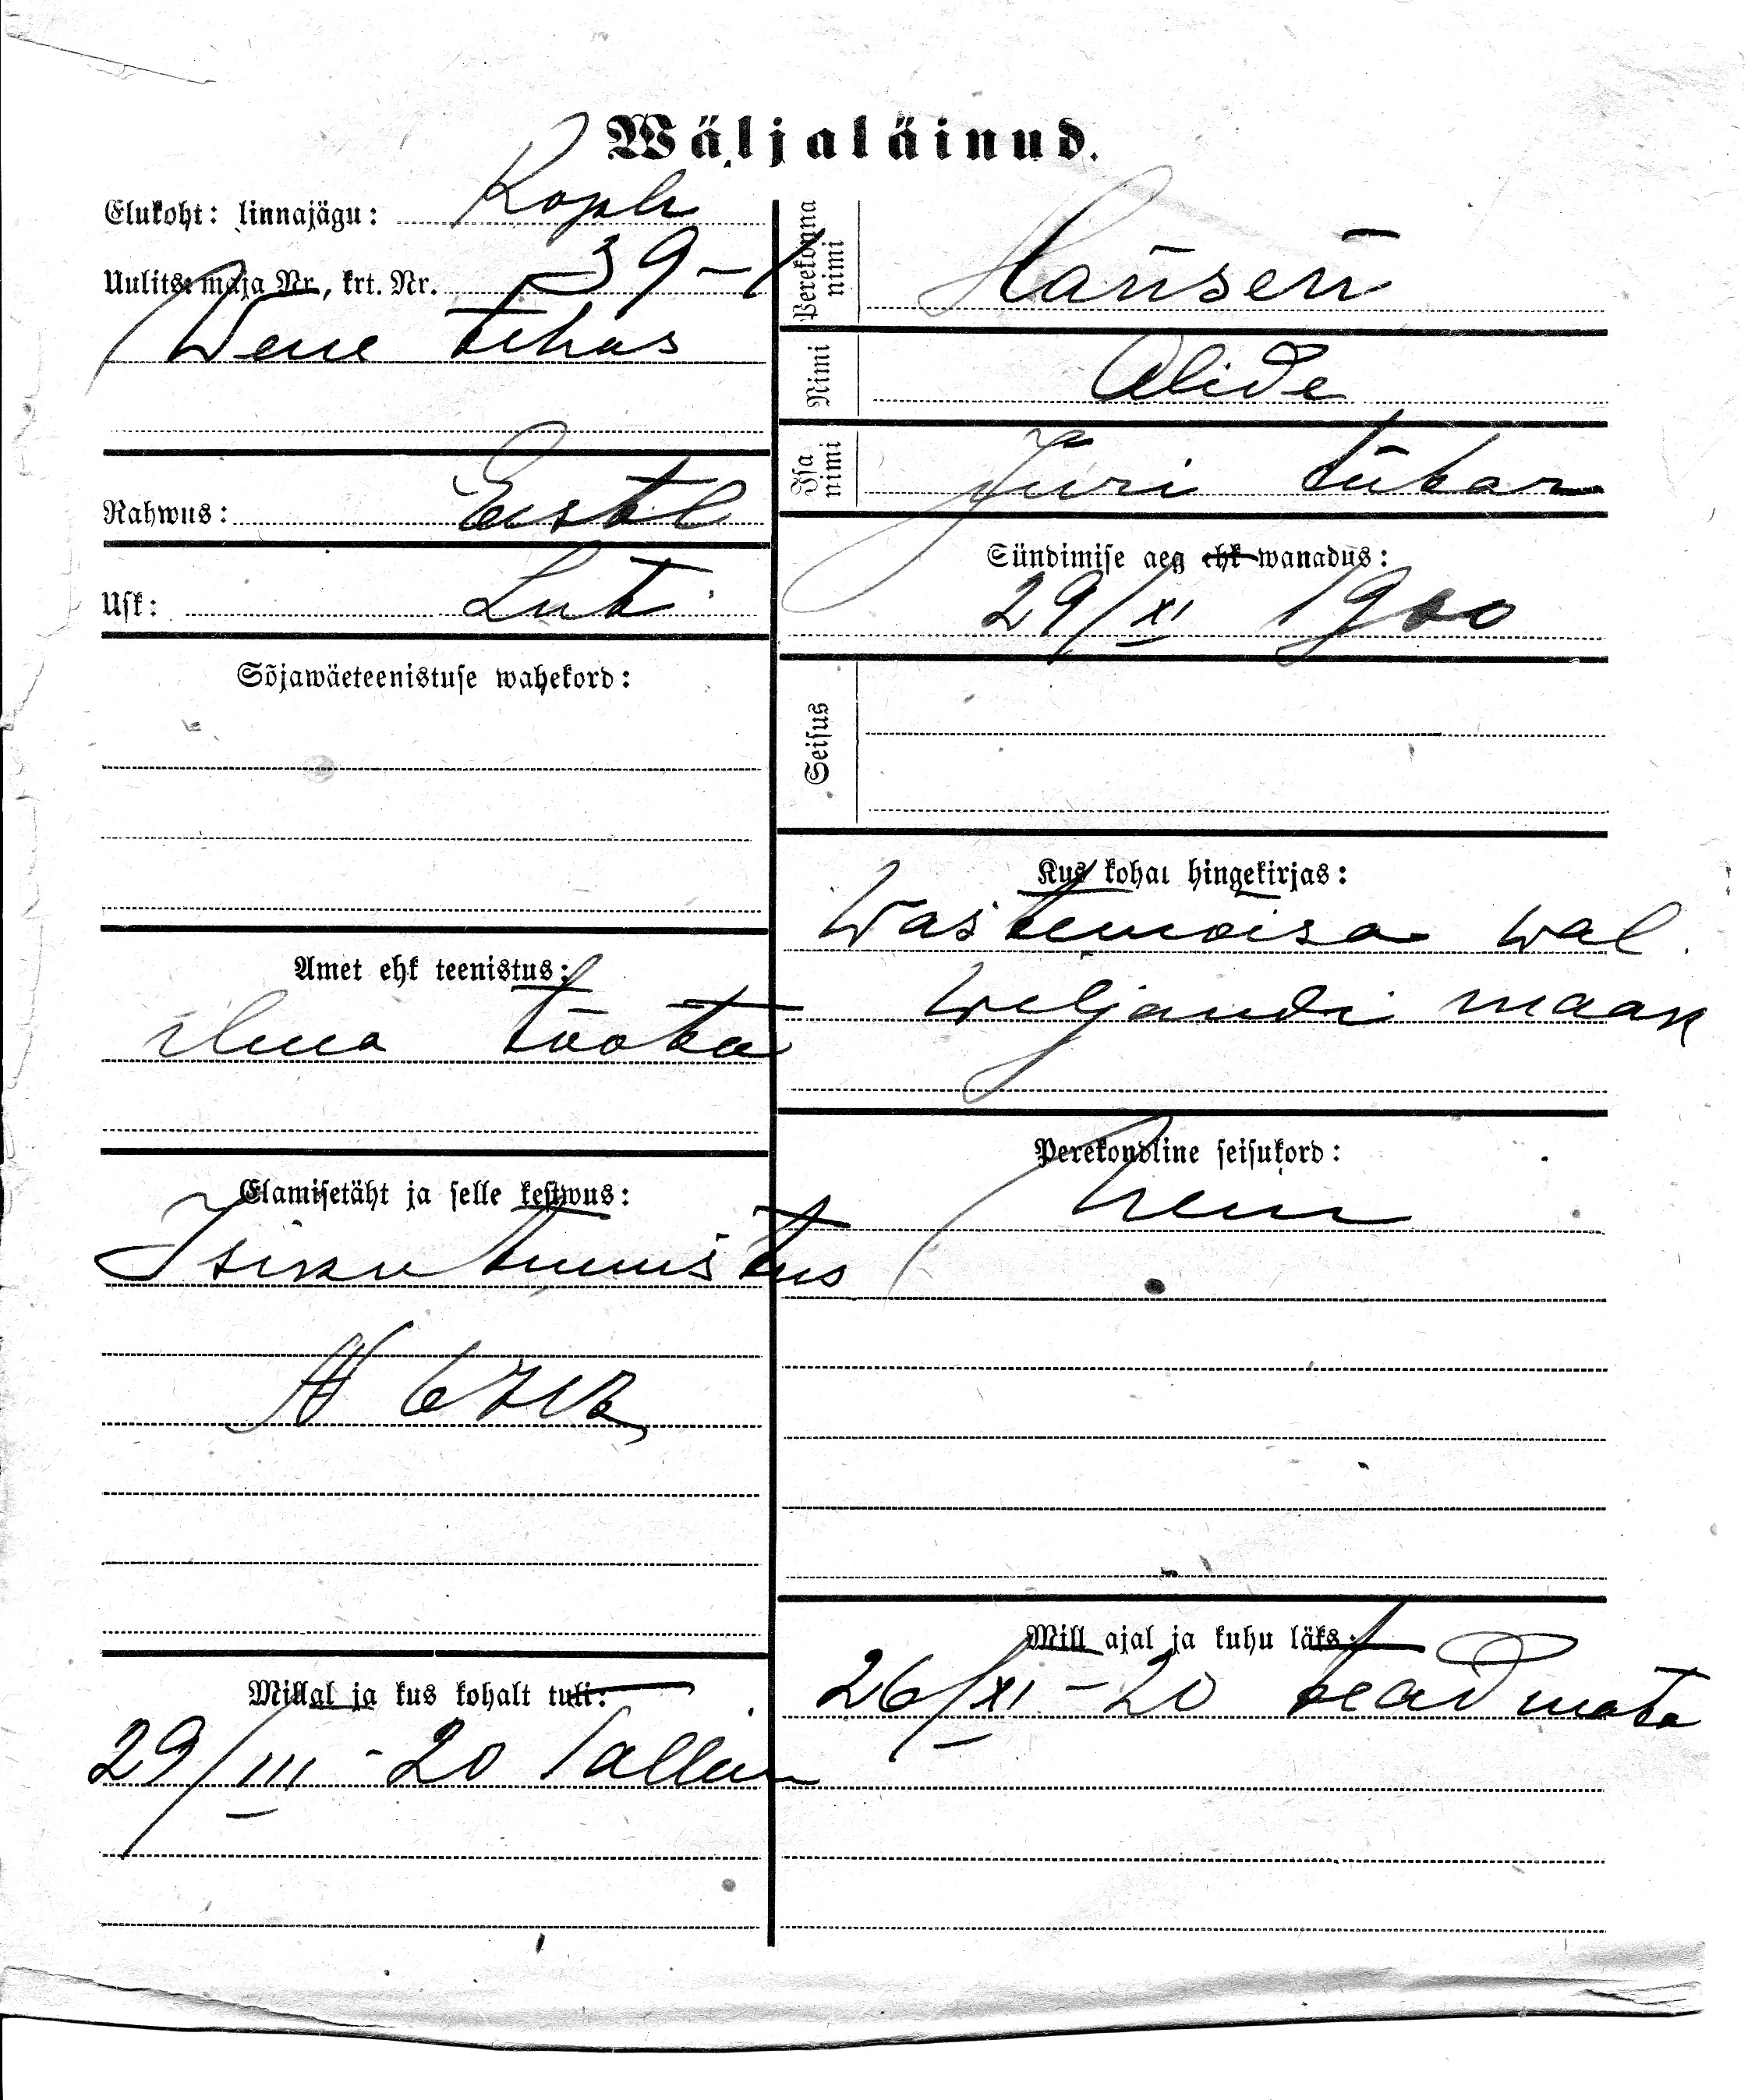 Wäljaläinud.
Elukoht: linnajägu: Kopli
Uulits: maja Nr., krt. Nr. 39-1
Wene tehas
Rahwus: Eestl
Usk: Lut.
Sõjawäeteenistuse wahekord:
Amet ehk teenistus:
ilma tööta
Elamisetäht ja selle kestwus:
Isiku tunnistus
N
Millal ja kus kohalt tuli:
29/III - 20 Tallinn
Perekonna nimi Hansen
Nimi Alide
Isa nimi Jüri tütar
Sündimise aeg ehk wanadus:
29/XI 1900
Seisus
Kus kohal hingekirjas:
Wastemõisa wal.
Weljandi maak
Perekondline seisukord:
Mill ajal ja kuhu läks:
26/XI - 20 teadmata